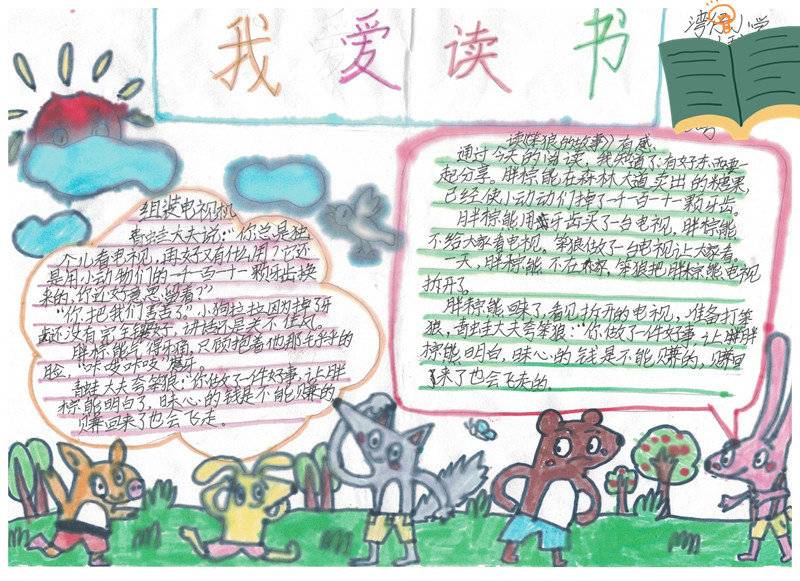 我爱读书
湾
小学
组装电视机
青蛙大夫说:“你总是独
个儿看电视,再好又有什么用?它还
是用小动物们的一千一百一十一颗牙齿换
来的,你还好意思留着?”
“你把我们害苦了”小狗拉拉因为掉了牙
齿还没有完全镶好,讲话还是关不住风。
胖棕熊气得牙痛,只顾抱着他那毛乎乎的
脸“咔嗞咔嗞”磨牙
青蛙大夫夸笨狼:“你做了一件好事,让胖
棕熊明白了,昧心的钱是不能赚的,
赚回来了也会飞走。
读《笨狼的故事》有感
通过今天的阅读,我知道了:有好东西要一
起分享。胖棕熊在森林大道卖出的糖果,
已经使小动动们掉了一千一百一十一颗牙齿。
胖棕熊用牙齿买了一台电视,胖棕熊
不给大家看电视,笨狼做了一台电视让大家看。
一天,胖棕熊不在家,笨狼把胖棕熊电视
拆开了。
胖棕熊回来了,看见拆开的电视,准备打笨
狼,青蛙大夫夸笨狼:“你做了一件好事,让胖
棕熊明白,昧心的钱是不能赚的,赚回
来了也会飞走的。